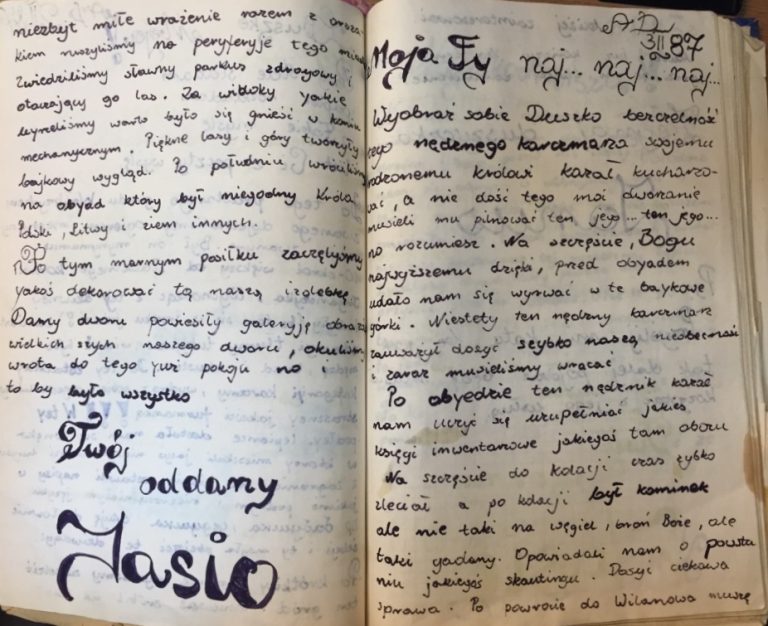 niezbyt miłe wrażenie razem z orsza-
kiem ruszyliśmy na peryferyje tego miasta
Zwiedziliśmy sławny parkus zdrojowy i
otaczający go las. Za widoky jakie
ujrzeliśmy warto było się gnieść w koniu
mechanycznym. Piękne lasy i góry tworzyły
bajkowy wygląd. Po południu wróciliśmy
na obyad który był niegodny Króla
Polski, Litwy i ziem innych.
Po tym marnym posiłku zaczęlyśmy
jakoś dekorować tą naszą izdebkę
Damy dworu powiesiły galeryję obrazów
wielkich
naszego dworu, okuliśmy
wrota do tego już pokoju no i
to by było wszystko
Twój
oddany
Jasio
AD 3 II 87
Moja Ty naj... naj... naj...
Wyobraź sobie Duszko bezczelność
tego nędznego karczmarza swojemu
rodzonemu królowi kazał kucharzo-
wać, a nie dość tego moi dworzanie
musieli mu pilnować ten jego... ten jego...
no rozumiesz. Na szczęście, Bogu
najwyższemu dzięki, przed obyadem
udało nam się wyrwać w te baykowe
górki. Niestety ten nędzny karczmarz
zauważył dosyć szybko naszą nieobecność
i zaraz musieliśmy wracać
Po obyedzie ten nędznik kazał
nam uczyć się uzupełniać jakieś
księgi inwentarzowe jakiegoś tam obozu
Na szczęście do kolacji czas szybko
zleciał a po kolacji był kominek
ale nie taki na węgiel, broń Boże, ale
taki gadany. Opowiadali nam o powsta
niu jakiegoś skautingu. Dosyć ciekawa
sprawa. Po powrocie do Wilanowa muszę